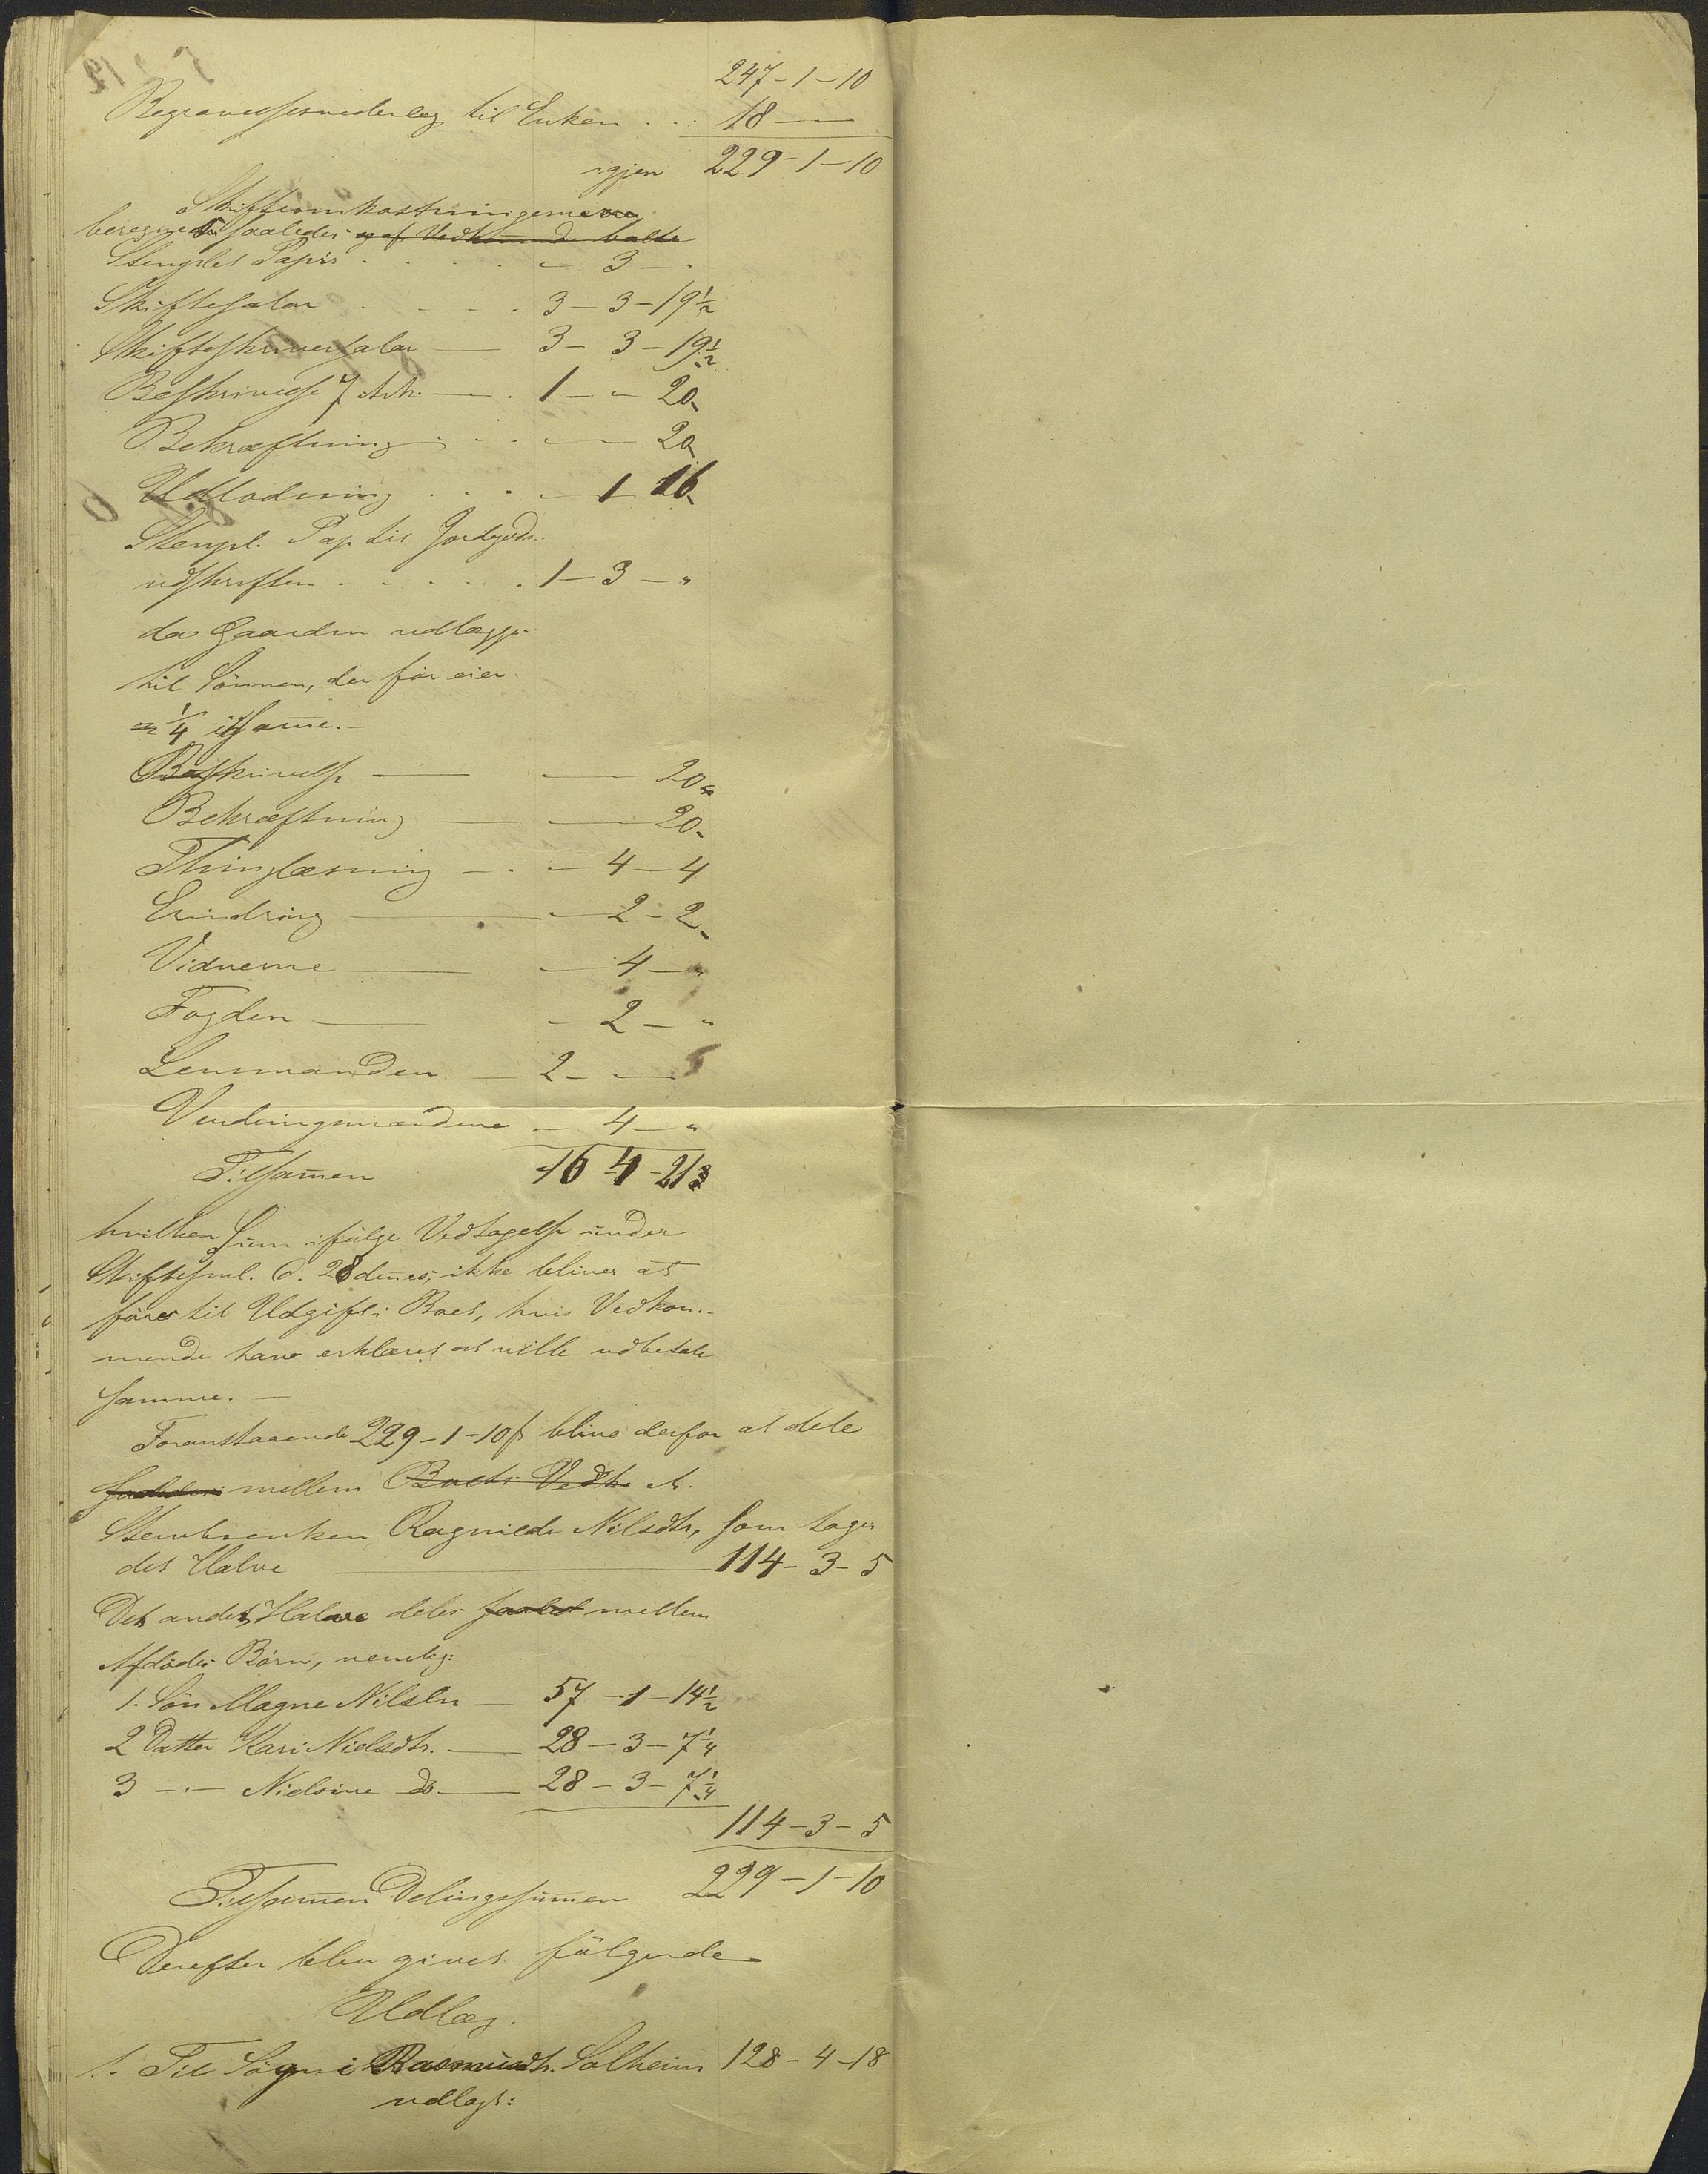 247-1-10
Begravelsesvederlag til Enken . . . 18 — —
igjen 229-1-10
Skifteomkostningerne
beregnes saaledes og af Vedkommende betalte
Stemplet Papir . . . . . - 3 - "
Skiftesalar . . . . 3 - 3 - 19½
Skifteskriversalar — 3 - 3 - 19½
Beskrivelse 7 Ark. — . 1 - " 20
Bekræftning . . . — 20
Udlodning . . . - 1 16
Stempl. Pap til Jordegods-
udskriften . . . . . . 1 - 3 - "
da Gaarden udlægges
til Sönnen, der för eier
¼ i Same. —
Beskrivelse — — 20
Bekræftning — — 20
Thinglæsning — . - 4 - 4
Erindring — - 2 - 2
Vidnerne — - 4 - "
Fogden — - 2 - "
Lensmanden — 2 - —
Vurderingsmændene - 4 - "
Tilsamen 16 4 - 21
hvilken Sum ifölge Vedtagelse under
Skiftesml. d. 28 dennes, ikke bliver at
före til Udgift i Boet, hvis Vedkom-
mende have erklæret at ville udbetale
samme. —
Foranstaaende 229-1-10 s bliver derfor at dele
mellem Boets Vedk.
Sterbenken Ragnilde Nilsdtr, som tager
det Halve — 114-3-5
Det andet Halve deles mellem
Afdödes Börn, nemlig:
1. Sön Magne Nilsen — 57-1-14½
2 Datter Kari Nielsdtr. — 28-3-7¼
3 -"- Nielsine do — 28-3-7¼
114-3-5
Tilsamen Delingssumen 229-1-10
Derefter blev givet fölgende
Udlæg.
1. Til Sögni Rasmusdtr. Solheim 128-4-18
udlagt: